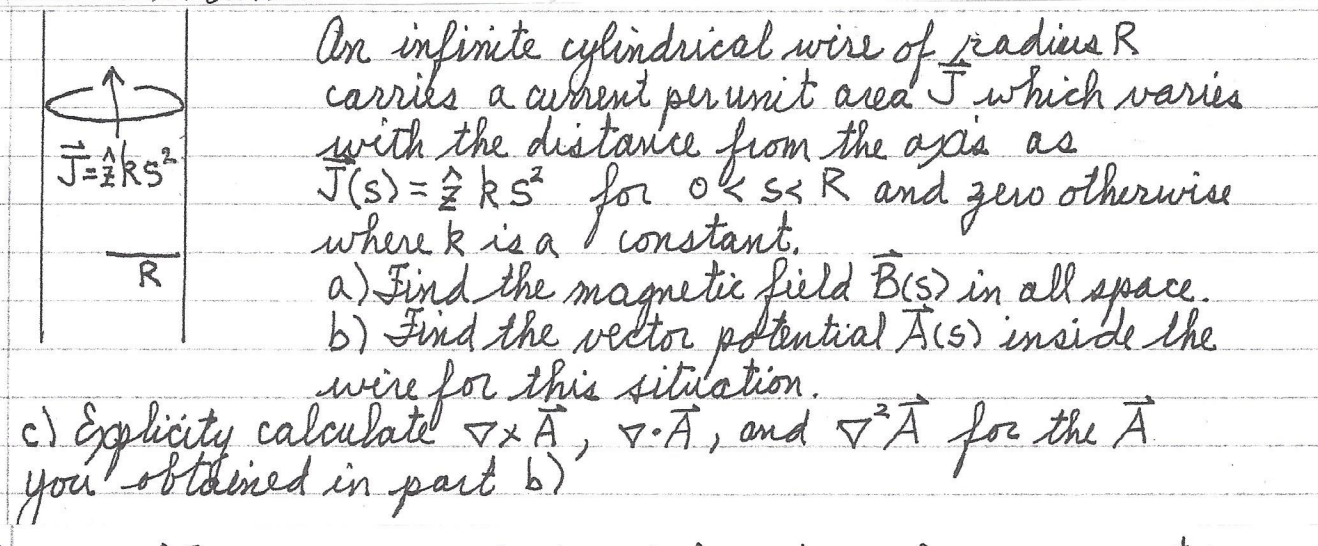 An infinite cylindrical wire of radius R
carries a current per unit area J⃗ which varies
with the distance from the axis as
J⃗=ẑks²
J⃗(s) = ẑ k s² for 0 < s < R and zero otherwise
where k is a constant.
R
a) Find the magnetic field B⃗(s) in all space.
b) Find the vector potential A⃗(s) inside the
wire for this situation.
c) Explicity calculate ∇×A⃗, ∇·A⃗, and ∇²A⃗ for the A⃗
you obtained in part b)